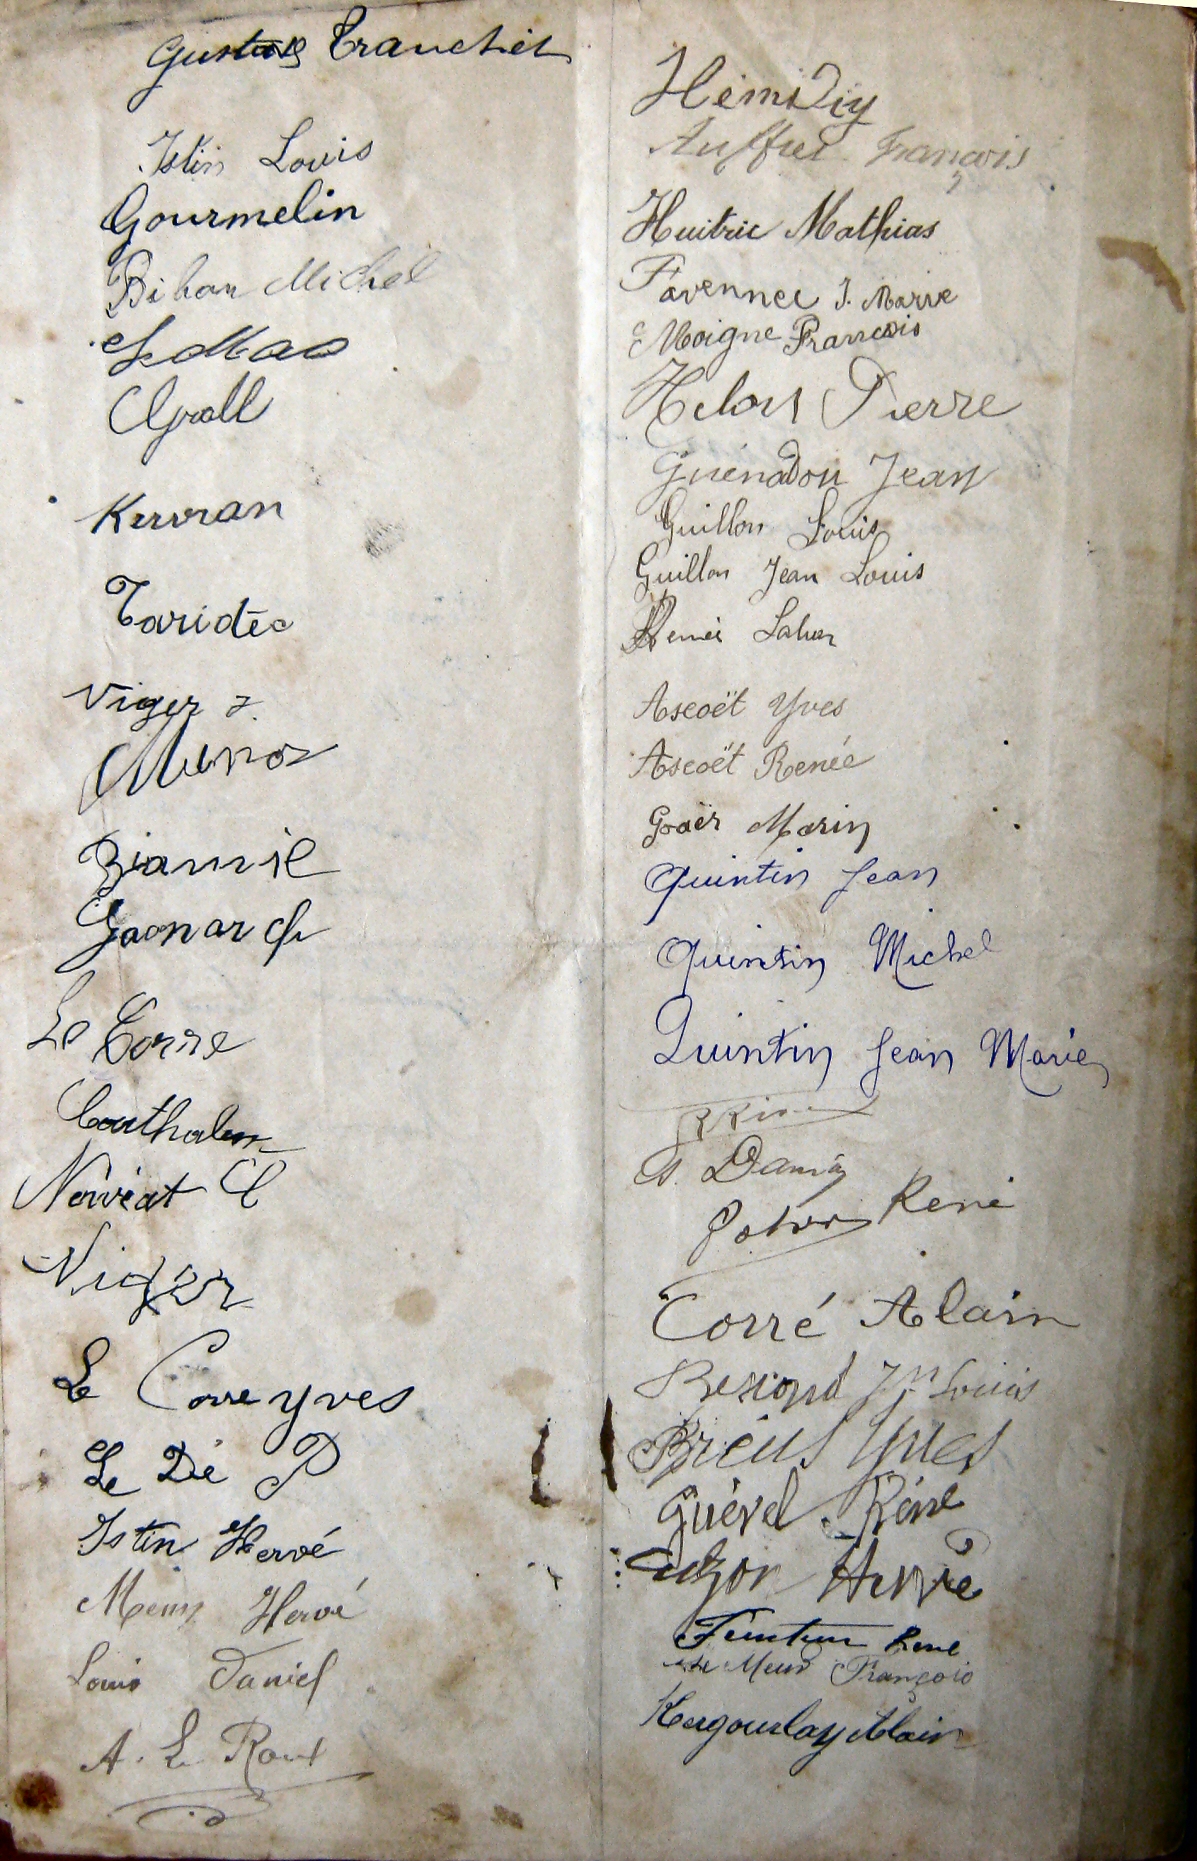 Gustave Tranchet
Istin Louis
Gourmelin
Bihan Michel
Grall
Kervran
Taridec
Viger J.
Gaonarch
Le Corre
Couthalem
Névéat
Viger
Le Corre yves
Le Dé P
Istin Hervé
Hervé
Louis Daniel
A. Le Roux
Hémidy
Auffret François
Huitric Mathias
Favennec J. Marie
Moigne François
Helou Pierre
Guénadou Jean
Guillou Louis
Guillou Jean Louis
Ascoët Yves
Ascoët Renée
Goaër Marin
Quintin Jean
Quintin Michel
Quintin Jean Marie
René
Corré Alain
Louis
Briens Yves
Guével Réné
Cuzon Hervé
Feunteun René
Le Meur François
Kergourlay Alain